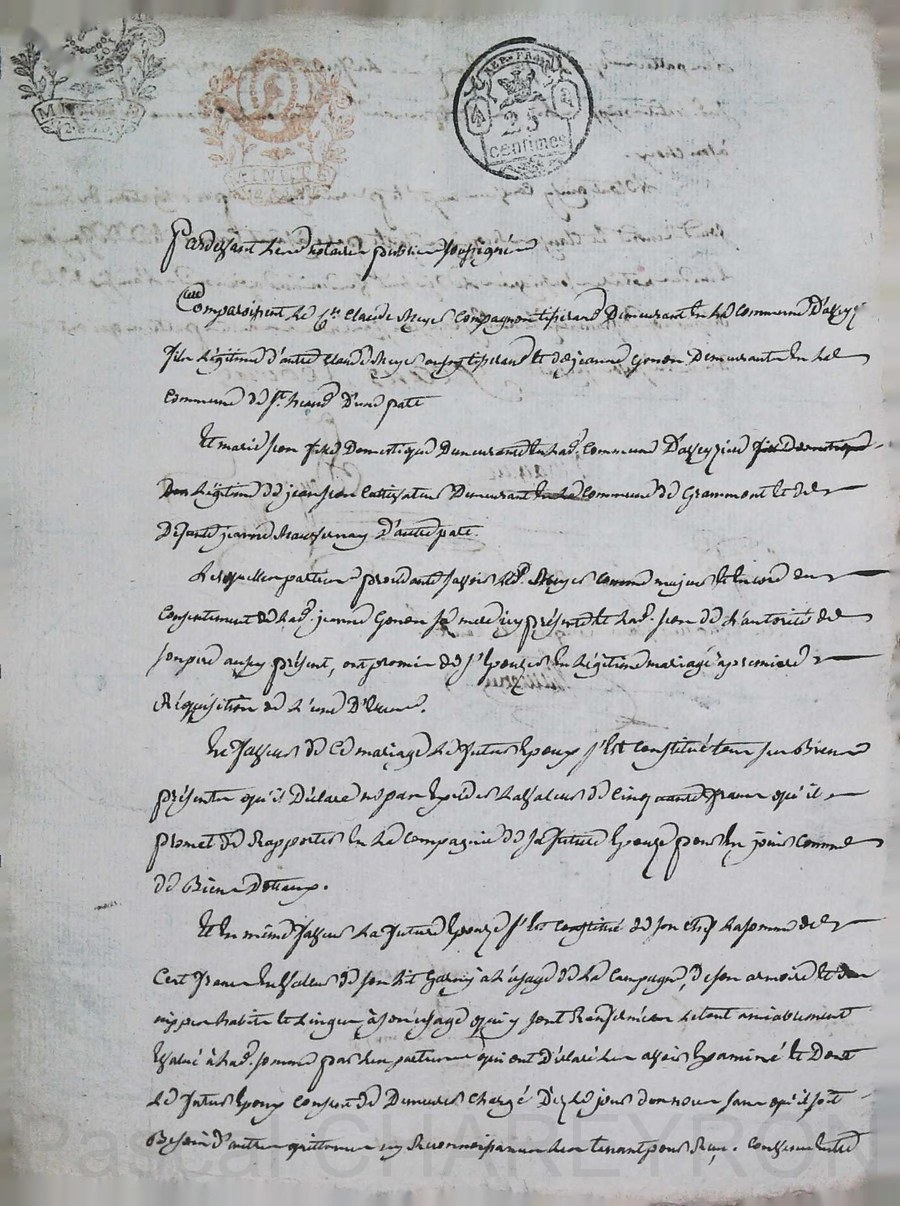 REP. FRA.
25
centimes
Pardevant les notaires publics soussignés
Comparaissent le Cen Claude Compagnon tisserand Demeurant en la Commune
fils légitime d'autre Claude aussy tisserand et de jeanne Gonon Demeurante en la
Commune de St D'une part
Et marie jeon fille Domestique Demeurante en lad. Commune
légitime de jean jeon Cultivateur Demeurant en la Commune de Grammont et de
Defunte jeanne D'autre part.
Lesquelles parties procedantes savoir led. comme majeur et encore du
Consentement de lad. jeanne Gonon sa mere icy présente et lad. jeon de l'autorité de
son pere aussy présent, ont promis de s'Epouzer En légitime mariage a premiere
Réquisition de l'une D'Elles.
En faveur de Ce mariage le futur Epoux s'est Constitué tous ses Biens
présents qu'il Déclare Exceder la valeur de Cinq cents francs qu'il
promet de Rapporter En la Compagnie de sa future Epouze pour En jouir Comme
de Biens Dotaux.
Et En même faveur la future Epouze s'est Constitué de son Chef la somme de
Cent francs En valeur de son lit Garny à l'usage de la Campagne, de son armoire et de
nippes habits et linges à son usage qui y sont Renfermées Le tout amiablement
Evalué à lad. somme par les parties qui ont Déclaré les avoir Examiné et Dont
le futur Epoux Consent de Demeurer Chargé Dez le jour des noces sans qu'il soit
Besoin d'autre quittance ny Reconnoissance les tenant pour Reçu.
Pascal CHAREYRON